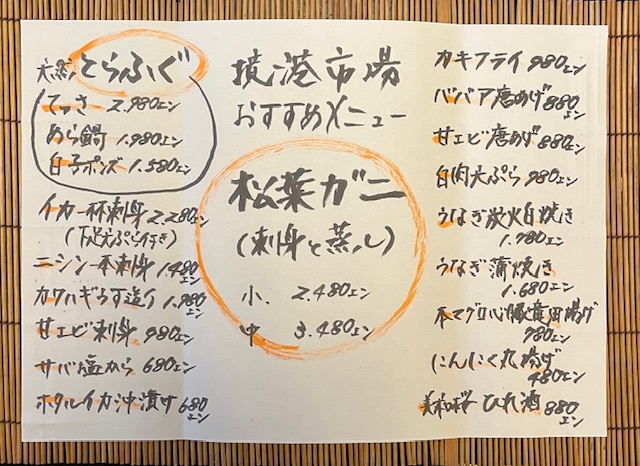 天然とらふぐ
てっさ 2.980エン
あら鍋 1.980エン
白子ポンズ 1.580エン
イカ一杯刺身 2.280エン
(下足天ぷら付き)
ニシン一本刺身 1.480エン
カワハギうす造り 1.980エン
甘エビ刺身 980エン
サバ塩から 680エン
ホタルイカ沖漬け 680エン
境港市場
おすすめメニュー
松葉ガニ
(刺身と蒸し)
小、2.480エン
中 3.480エン
カキフライ 980エン
ババア唐あげ 880エン
甘エビ唐めげ 880エン
白肉天ぷら 980エン
うなぎ炭火白焼き
1.780エン
うなぎ蒲焼き
1.680エン
本マグロ心臓竜田揚げ
980エン
にんにく丸揚げ
480エン
美和桜ひれ酒 880エン